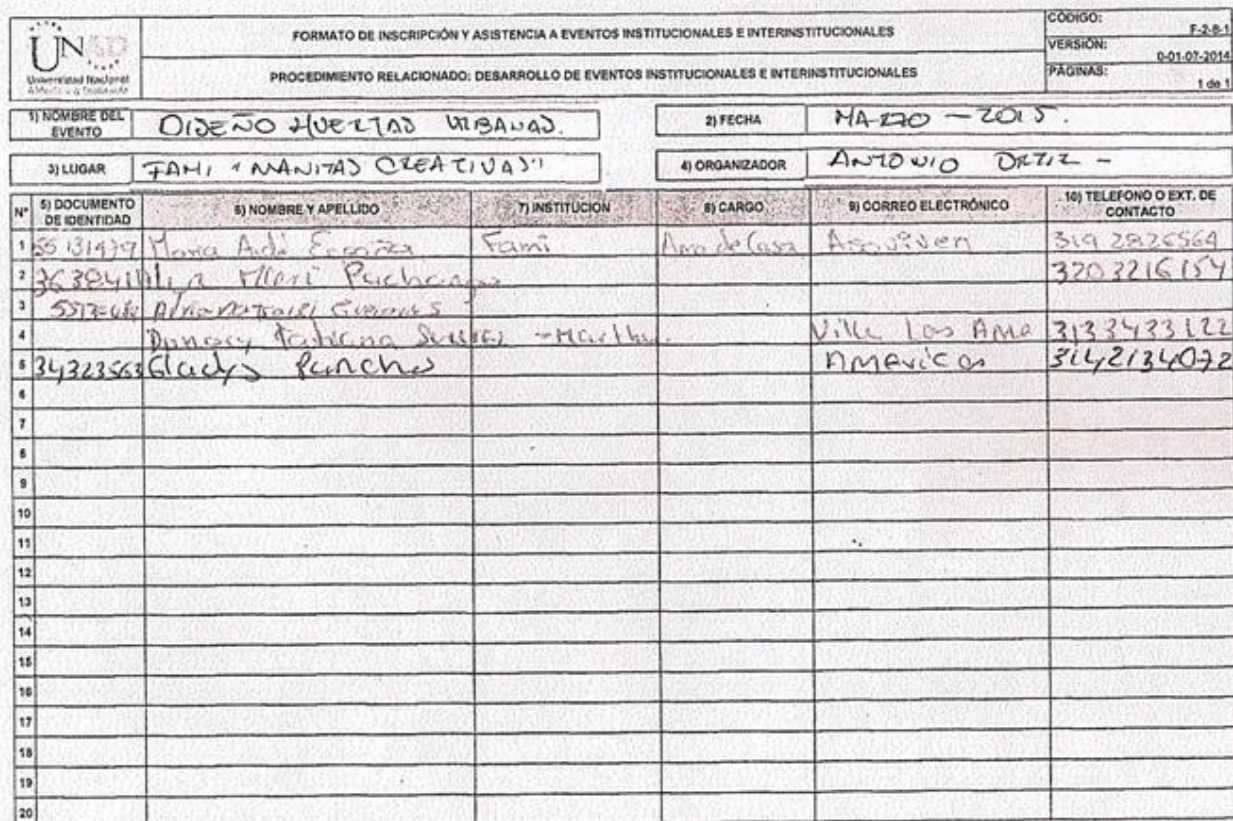 UNAD
Universidad Nacional
Abierta y a Distancia
FORMATO DE INSCRIPCIÓN Y ASISTENCIA A EVENTOS INSTITUCIONALES E INTERINSTITUCIONALES
PROCEDIMIENTO RELACIONADO: DESARROLLO DE EVENTOS INSTITUCIONALES E INTERINSTITUCIONALES
CÓDIGO: F-2-8-1
VERSIÓN: 0-01-07-2014
PÁGINAS: 1 de 1
1) NOMBRE DEL EVENTO DISEÑO HUERTAS URBANAS.
2) FECHA MARZO - 2015.
3) LUGAR FAMI "MANITAS CREATIVAS"
4) ORGANIZADOR ANTONIO ORTIZ -
N° 5) DOCUMENTO DE IDENTIDAD 6) NOMBRE Y APELLIDO 7) INSTITUCIÓN 8) CARGO 9) CORREO ELECTRÓNICO 10) TELEFONO O EXT. DE CONTACTO
1 Maria Fami Ama de Casa Asoviven 319 2826564
2 3203216154
3
4 Villa Las Ame 3133433122
5 34323563 Gladys Puncho Americas 3142134072
6
7
8
9
10
11
12
13
14
15
16
17
18
19
20